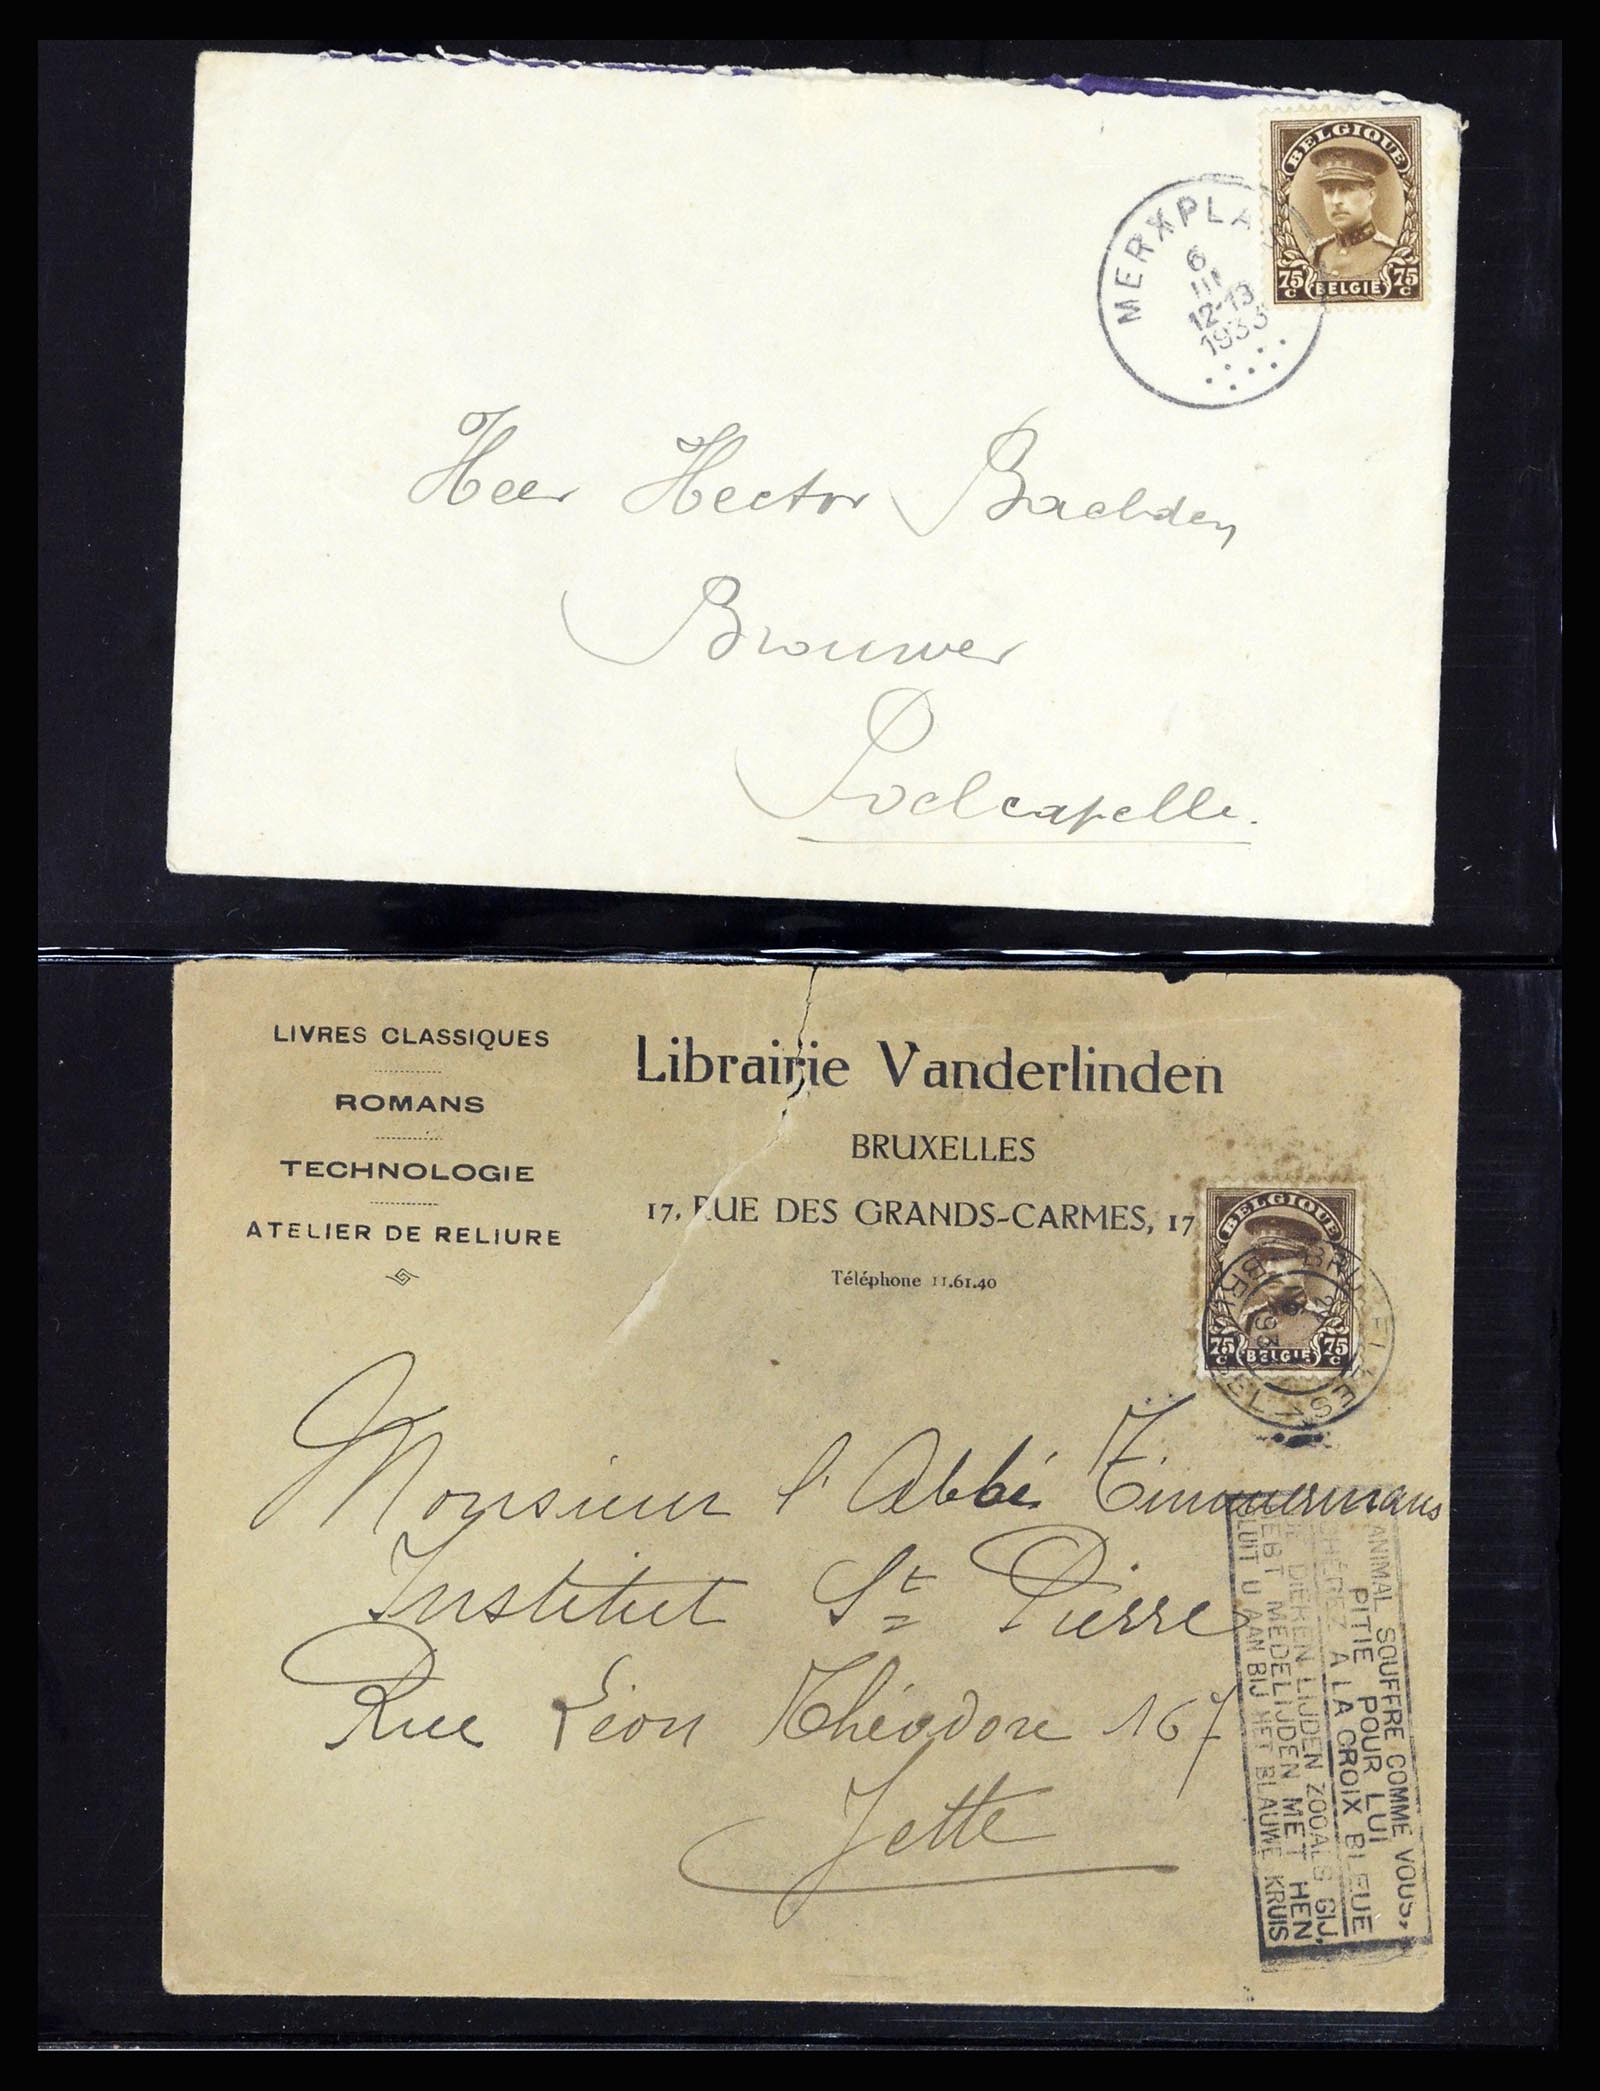 BELGIQUE
75 C BELGIE 75 C
MERXPLA
6
III
12-13
1933
Heer Hector
Brouwer
Poelcapelle.
LIVRES CLASSIQUES
ROMANS
TECHNOLOGIE
ATELIER DE RELIURE
Librairie Vanderlinden
BRUXELLES
17, RUE DES GRANDS-CARMES, 17
Téléphone 11.61.40
BELGIQUE
75 C BELGIE 75 C
Monsieur l'Abbé Timmermans
Institut St Pierre
Rue Léon Théodore 167
Jette
ANIMAL SOUFFRE COMME VOUS,
PITIE POUR LUI
A LA CROIX BLEUE
DIEREN LIJDEN ZOOALS GIJ,
HEBT MEDELIJDEN MET HEN
SLUIT U AAN BIJ HET BLAUWE KRUIS